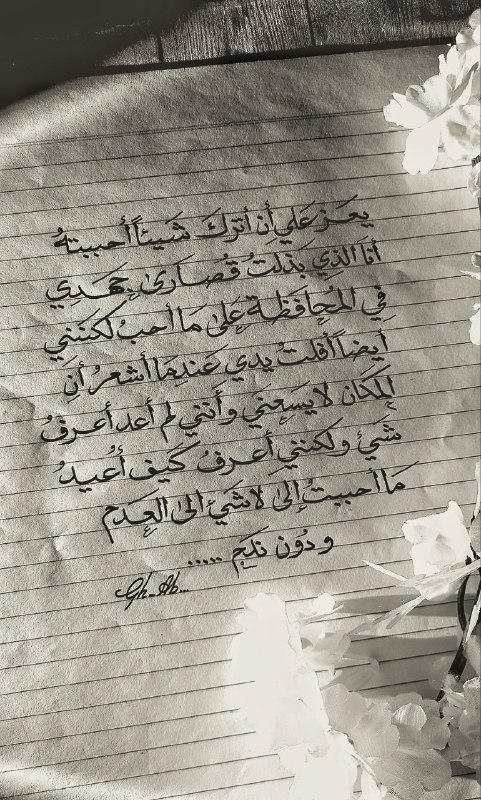 يعز علي أن أترك شيئاً أحببتهُ
أنا الذي بذلتُ قُصارى جهدي
في المُحافظة على ما أحبُ لكنني
أيضاً أفلتُ يدي عندما أشعرُ أن
المكان لا يسعني وأنني لم أعد أعرفُ
شيء ولكنني أعرفُ كيف أُعيدُ
ما أحببتُ إلى لا شيء الى العدم
ودُون ندم .....
Gh_Ab...